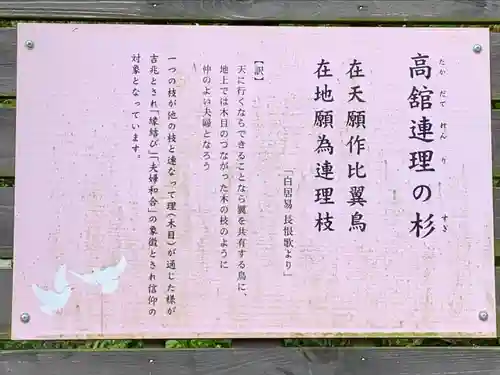 高舘連理の杉
たかだてれんりすぎ
在天願作比翼鳥
在地願為連理枝
「白居易 長恨歌より」
【訳】
天に行くならできることなら翼を共有する鳥に、
地上では木目のつながった木の枝のように
仲のよい夫婦となろう
一つの枝が他の枝と連なって理(木目)が通じた様が
吉兆とされ「縁結び」「夫婦和合」の象徴とされ信仰の
対象となっています。